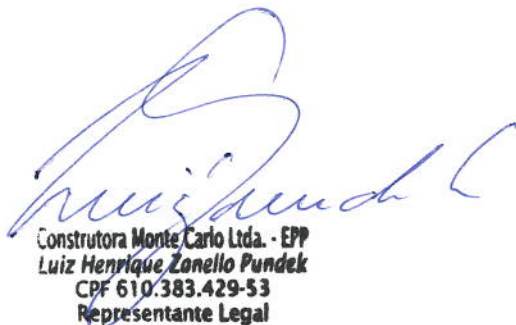 Construtora Monte Carlo Ltda. - EPP
Luiz Henrique Zanello Pundek
CPF 610.383.429-53
Representante Legal